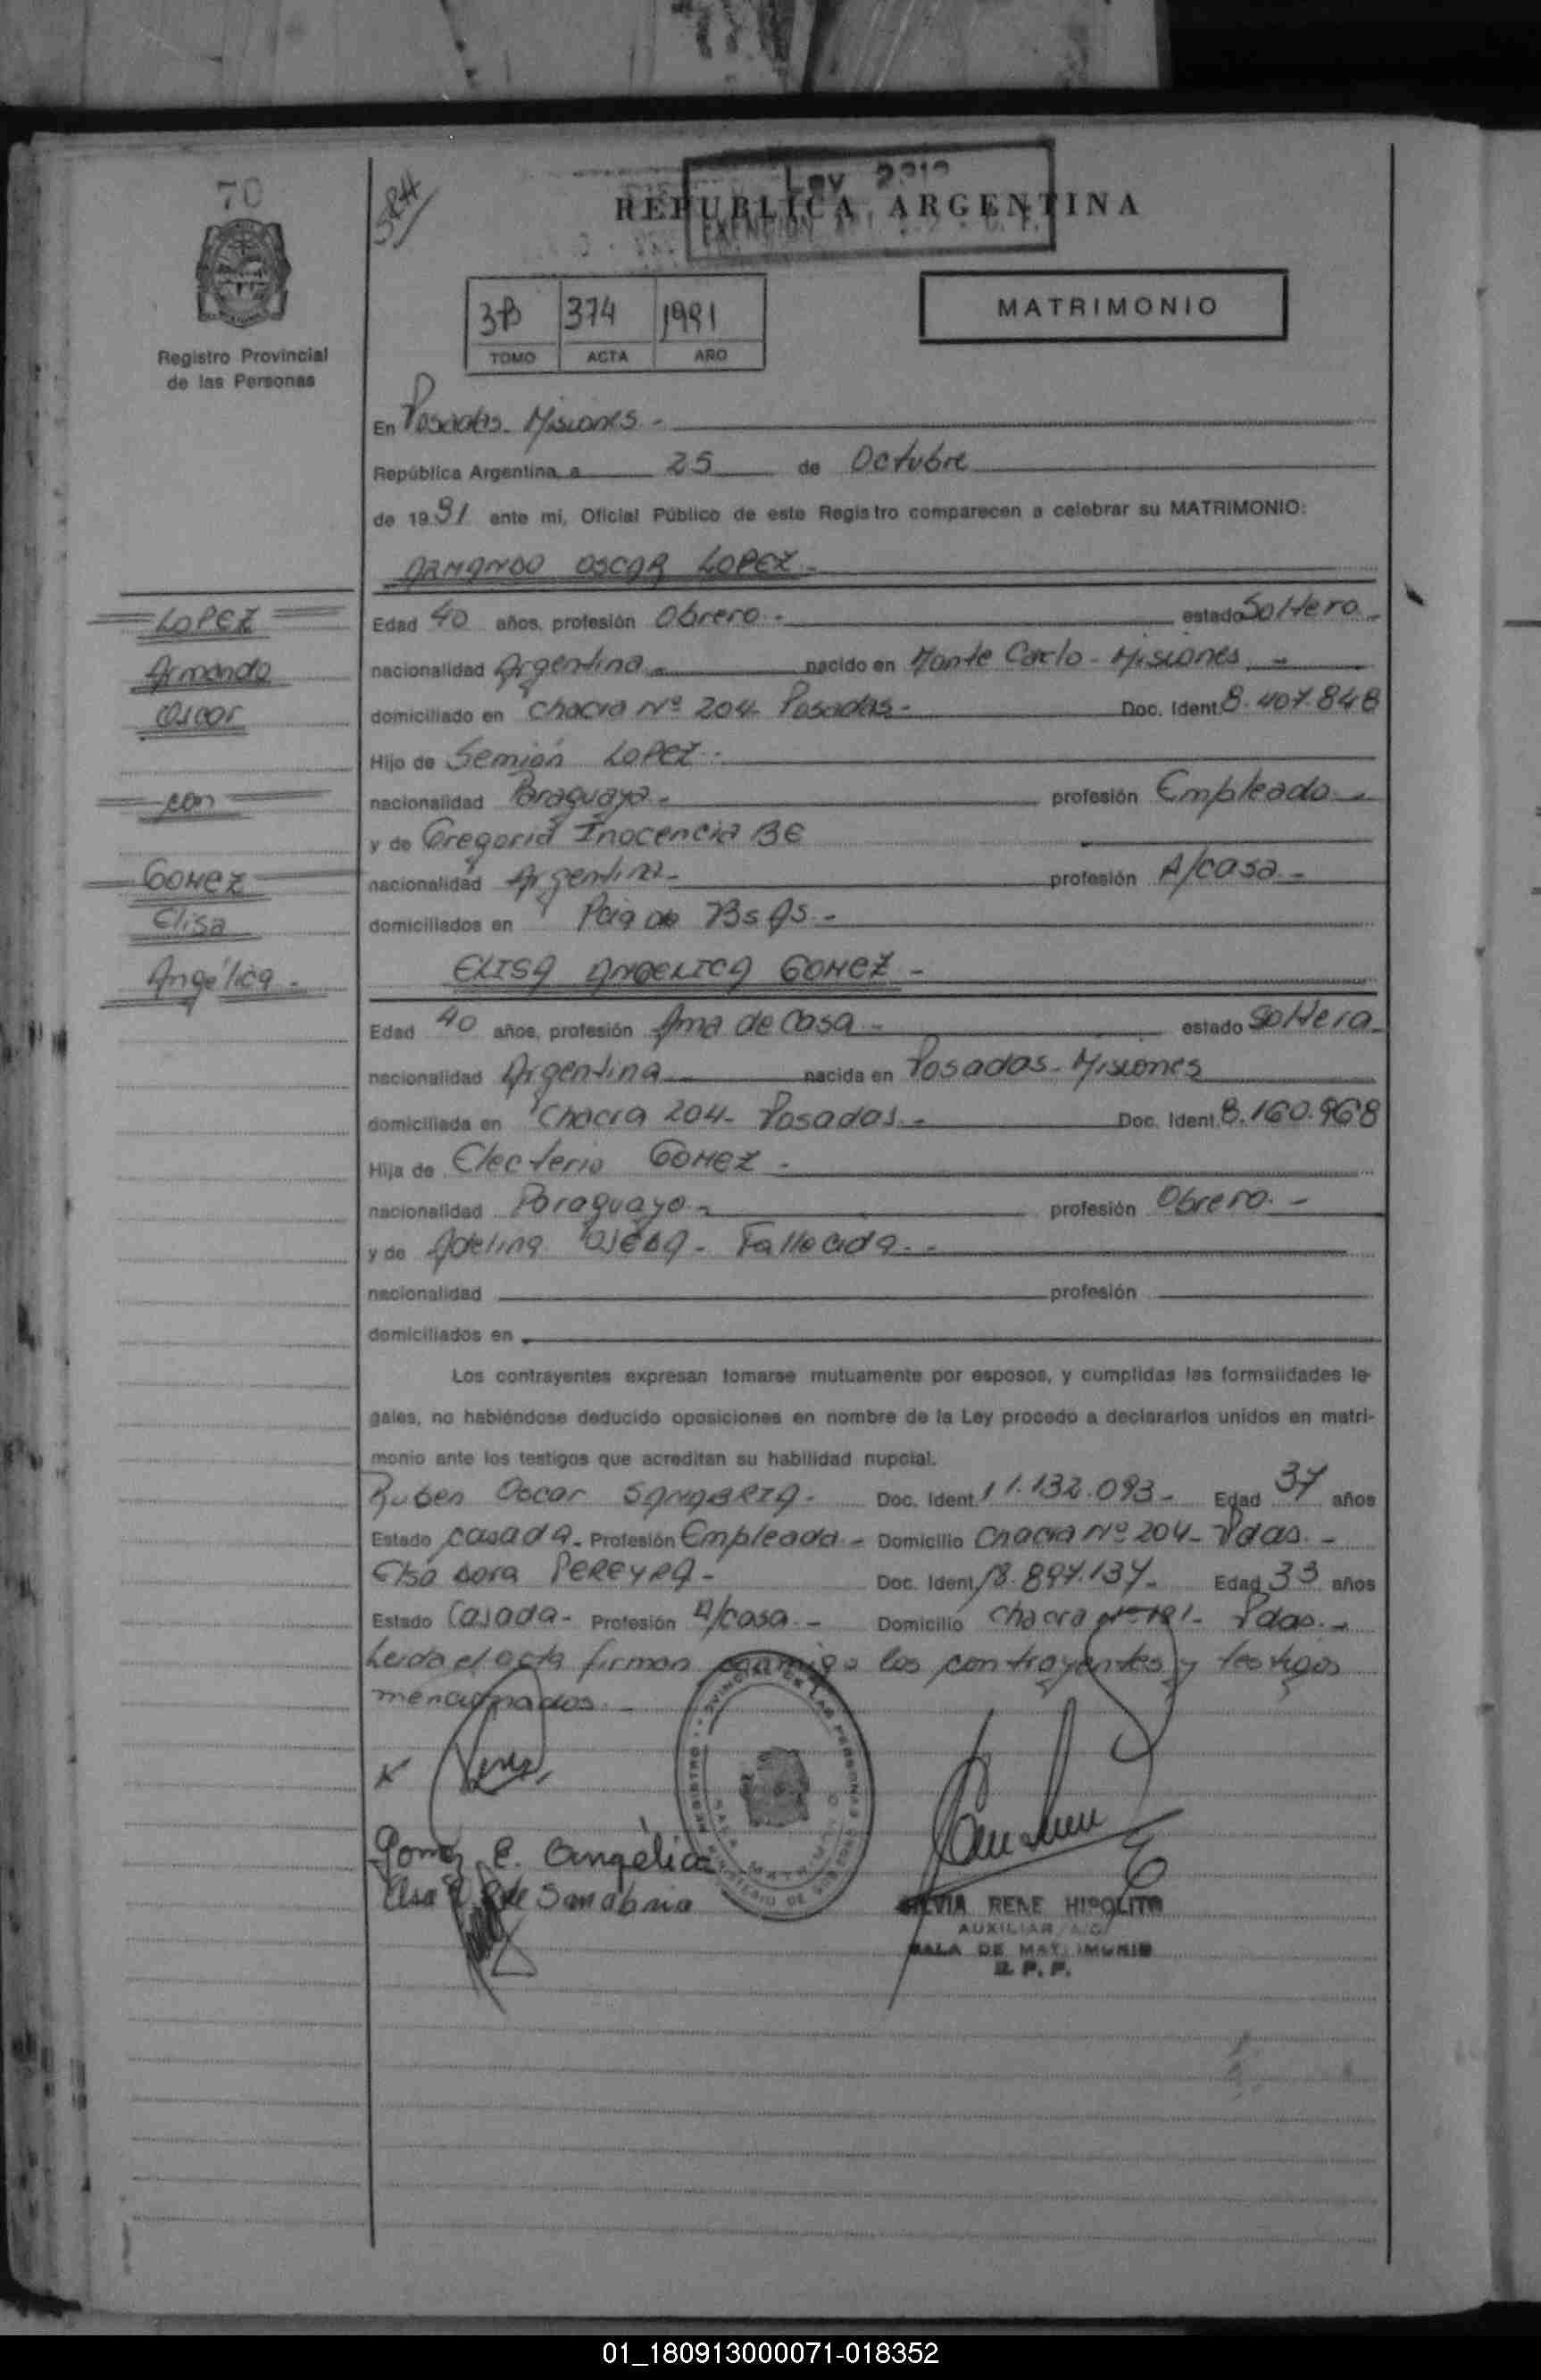 70
Ley 2313
REPUBLICA ARGENTINA
EXENCION
3B 374 1991
TOMO ACTA AÑO
MATRIMONIO
Registro Provincial
de las Personas
En Posadas - Misiones -
República Argentina a 25 de Octubre
de 1991 ante mi, Oficial Público de este Registro comparecen a celebrar su MATRIMONIO:
ARMANDO OSCAR LOPEZ -
LOPEZ
Armando
Oscar
con
GOMEZ
Elisa
Angélica -
Edad 40 años, profesión Obrero - estado Soltero -
nacionalidad Argentina - nacido en Monte Carlo - Misiones -
domiciliado en Chacra Nº 204 - Posadas - Doc. Ident. 8.407.848
Hijo de Semión LOPEZ -
nacionalidad Paraguaya - profesión Empleado -
y de Gregoria Inocencia BE
nacionalidad Argentina - profesión A/casa -
domiciliados en Pcia de Bs As -
ELISA ANGELICA GOMEZ -
Edad 40 años, profesión Ama de Casa - estado Soltera -
nacionalidad Argentina nacida en Posadas - Misiones
domiciliada en Chacra 204 - Posadas - Doc. Ident. 8.160.968
Hija de Electerio GOMEZ -
nacionalidad Paraguayo - profesión Obrero -
y de Adelina OJEDA - Fallecida -
nacionalidad profesión
domiciliados en
Los contrayentes expresan tomarse mutuamente por esposos, y cumplidas las formalidades le-
gales, no habiéndose deducido oposiciones en nombre de la Ley procedo a declararlos unidos en matri-
monio ante los testigos que acreditan su habilidad nupcial.
Ruben Oscar SANABRIA - Doc. Ident. 11.132.093 - Edad 37 años
Estado casada - Profesión Empleada - Domicilio Chacra Nº 204 - Pdas. -
Elsa Dora PEREYRA - Doc. Ident. 13.897.137 - Edad 33 años
Estado Casada - Profesión A/casa - Domicilio Chacra Nº 181 - Pdas. -
Leida el acta firman conmigo los contrayentes y testigos
mencionados -
Gomez E. Angélica
Elsa P. de Sanabria
SILVIA RENE HIPOLITO
AUXILIAR A/C
SALA DE MATRIMONIO
R. P. P.
01_180913000071-018352